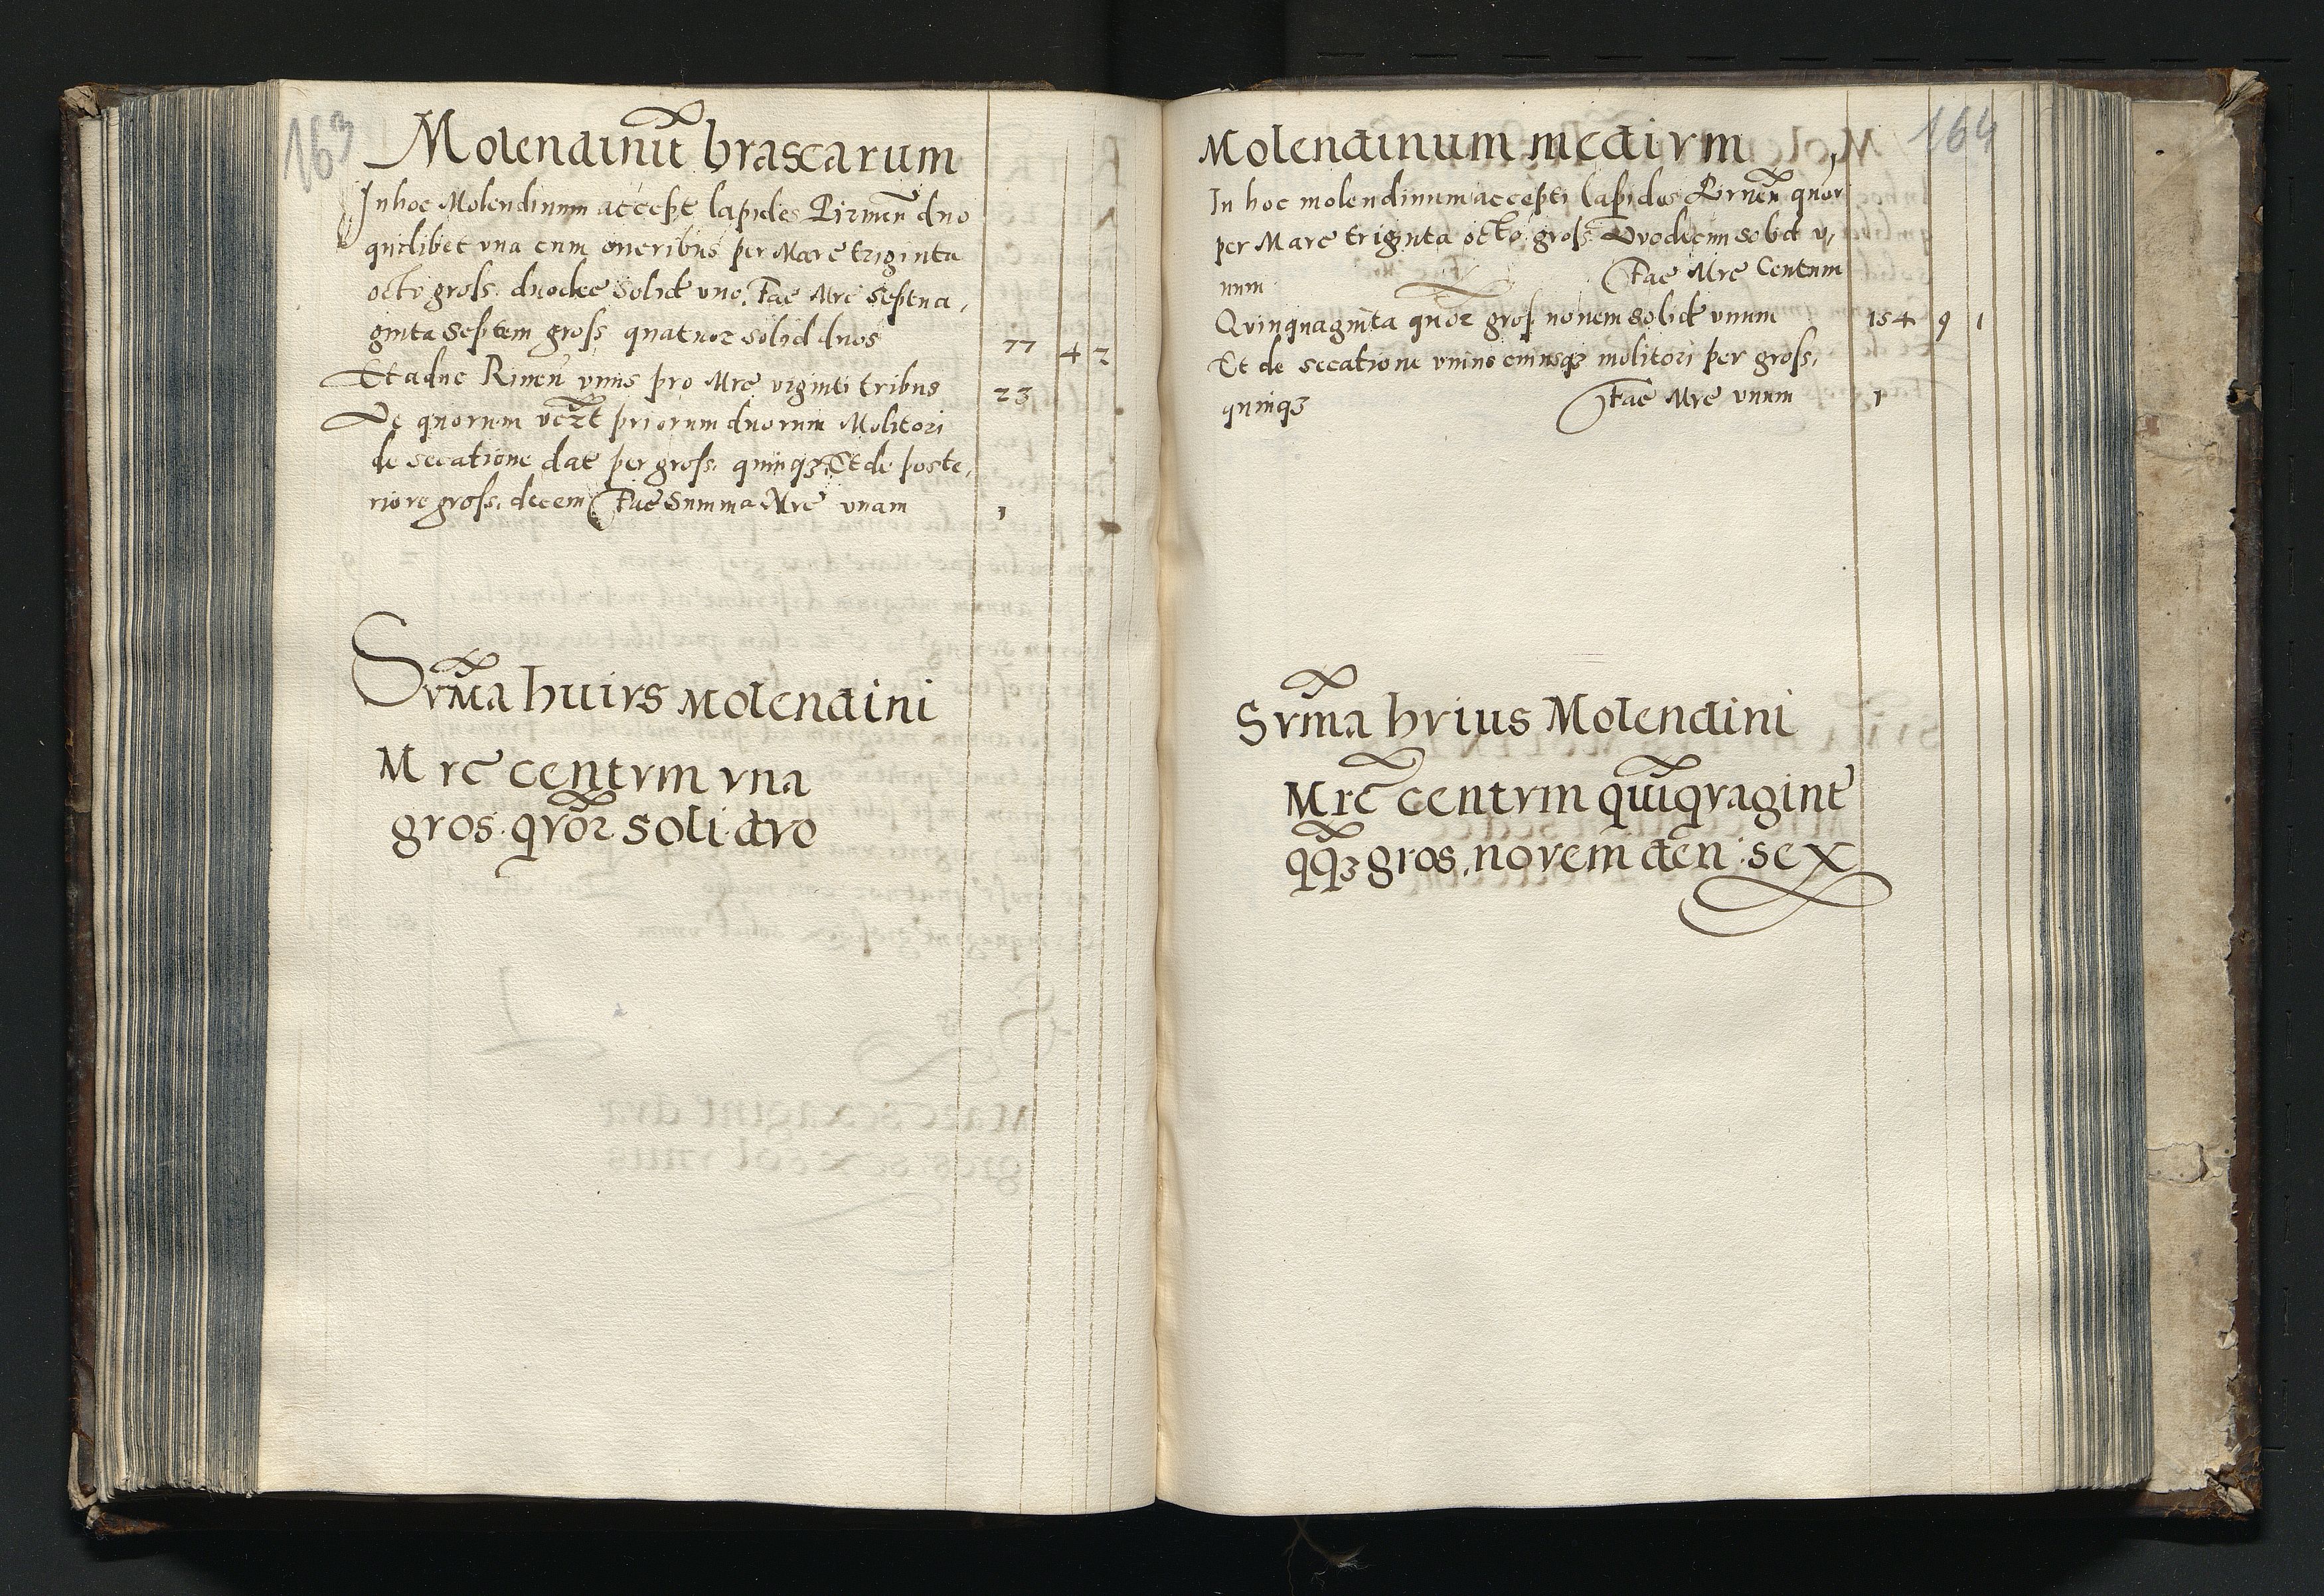 163
Molendinū brascarum
In hoc Molendinum accepi lapides Pirnen̄ duo
quilibet vna cum oneribus per Marc triginta
octo gross. duodec solid vno. Fac Mrc septua,
ginta septem gross quatuor solid duos 77 4 2
Et adhc Rinen̄ vnus pro Mrc viginti tribus 23
De quorum priorum duorum Molitori
de secatione dat per gross. quinqʒ Et de poste,
riore gross. decem Fac Summa Mrc vnam 1
Svm̄a huivs Molendini
Mrc centvm vna
gros. qvor soli. dvo
164
Molendinum medivm
In hoc molendinum accepti lapides Pirnen̄ quor
per Marc triginta octo gross. Dvodecim solid v,
num Fac Mrc Centum
Qvinquaginta quor gros. nouem solid vnum 154 9 1
Et de secatione vnius cuiusqʒ molitori per gross.
quinqʒ Fac Mrc vnum 1
Svm̄a hvius Molendini
Mrc centvm quīqvagint
qqʒ gros. novem den. sex